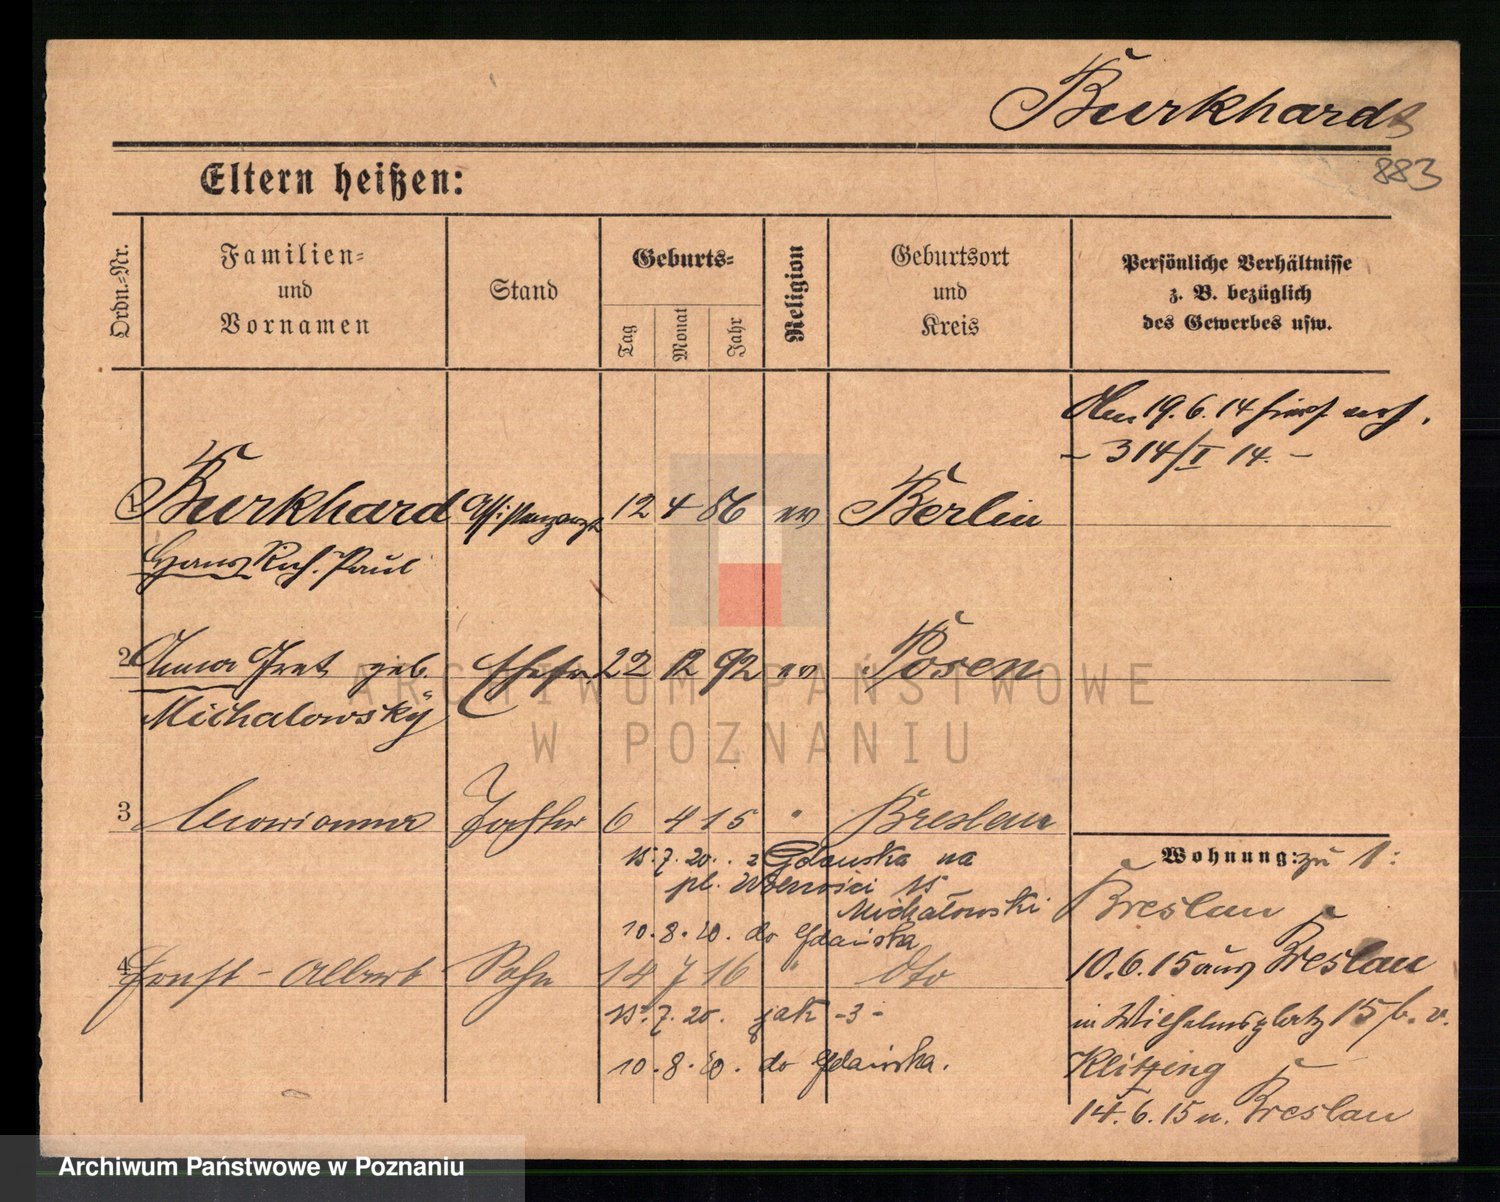 Burkhardt
883
Eltern heißen:
Ordn.-Nr.
Familien-
und
Vornamen
Stand
Geburts-
Tag
Monat
Jahr
Religion
Geburtsort
und
Kreis
Persönliche Verhältnisse
z. B. bezüglich
des Gewerbes usw.
19. 6. 14
- 314/I 14. -
1 Burkhard Assistenzarzt 12 4 86 ev Berlin
Hans Rich. Paul
2 Anna geb. Ehefr. 22 12 92 ev Posen
Michalowsky
3 Marianna Tochter 6 4 15 " Breslau
15. 7. 20. z Gdańska na
pl. Wolności 15
Michałowski
10. 8. 20. do Gdańska
4 Ernst - Albert Sohn 14 7 16 " dto
15. 7. 20. jak -3-
10. 8. 20. do Gdańska.
Wohnung: zu 1:
Breslau
10. 6. 15 aus Breslau
in Wilhelmsplatz 15 b. v.
Klitzing
14. 6. 15 n. Breslau
ARCHIWUM PAŃSTWOWE
W POZNANIU
Archiwum Państwowe w Poznaniu